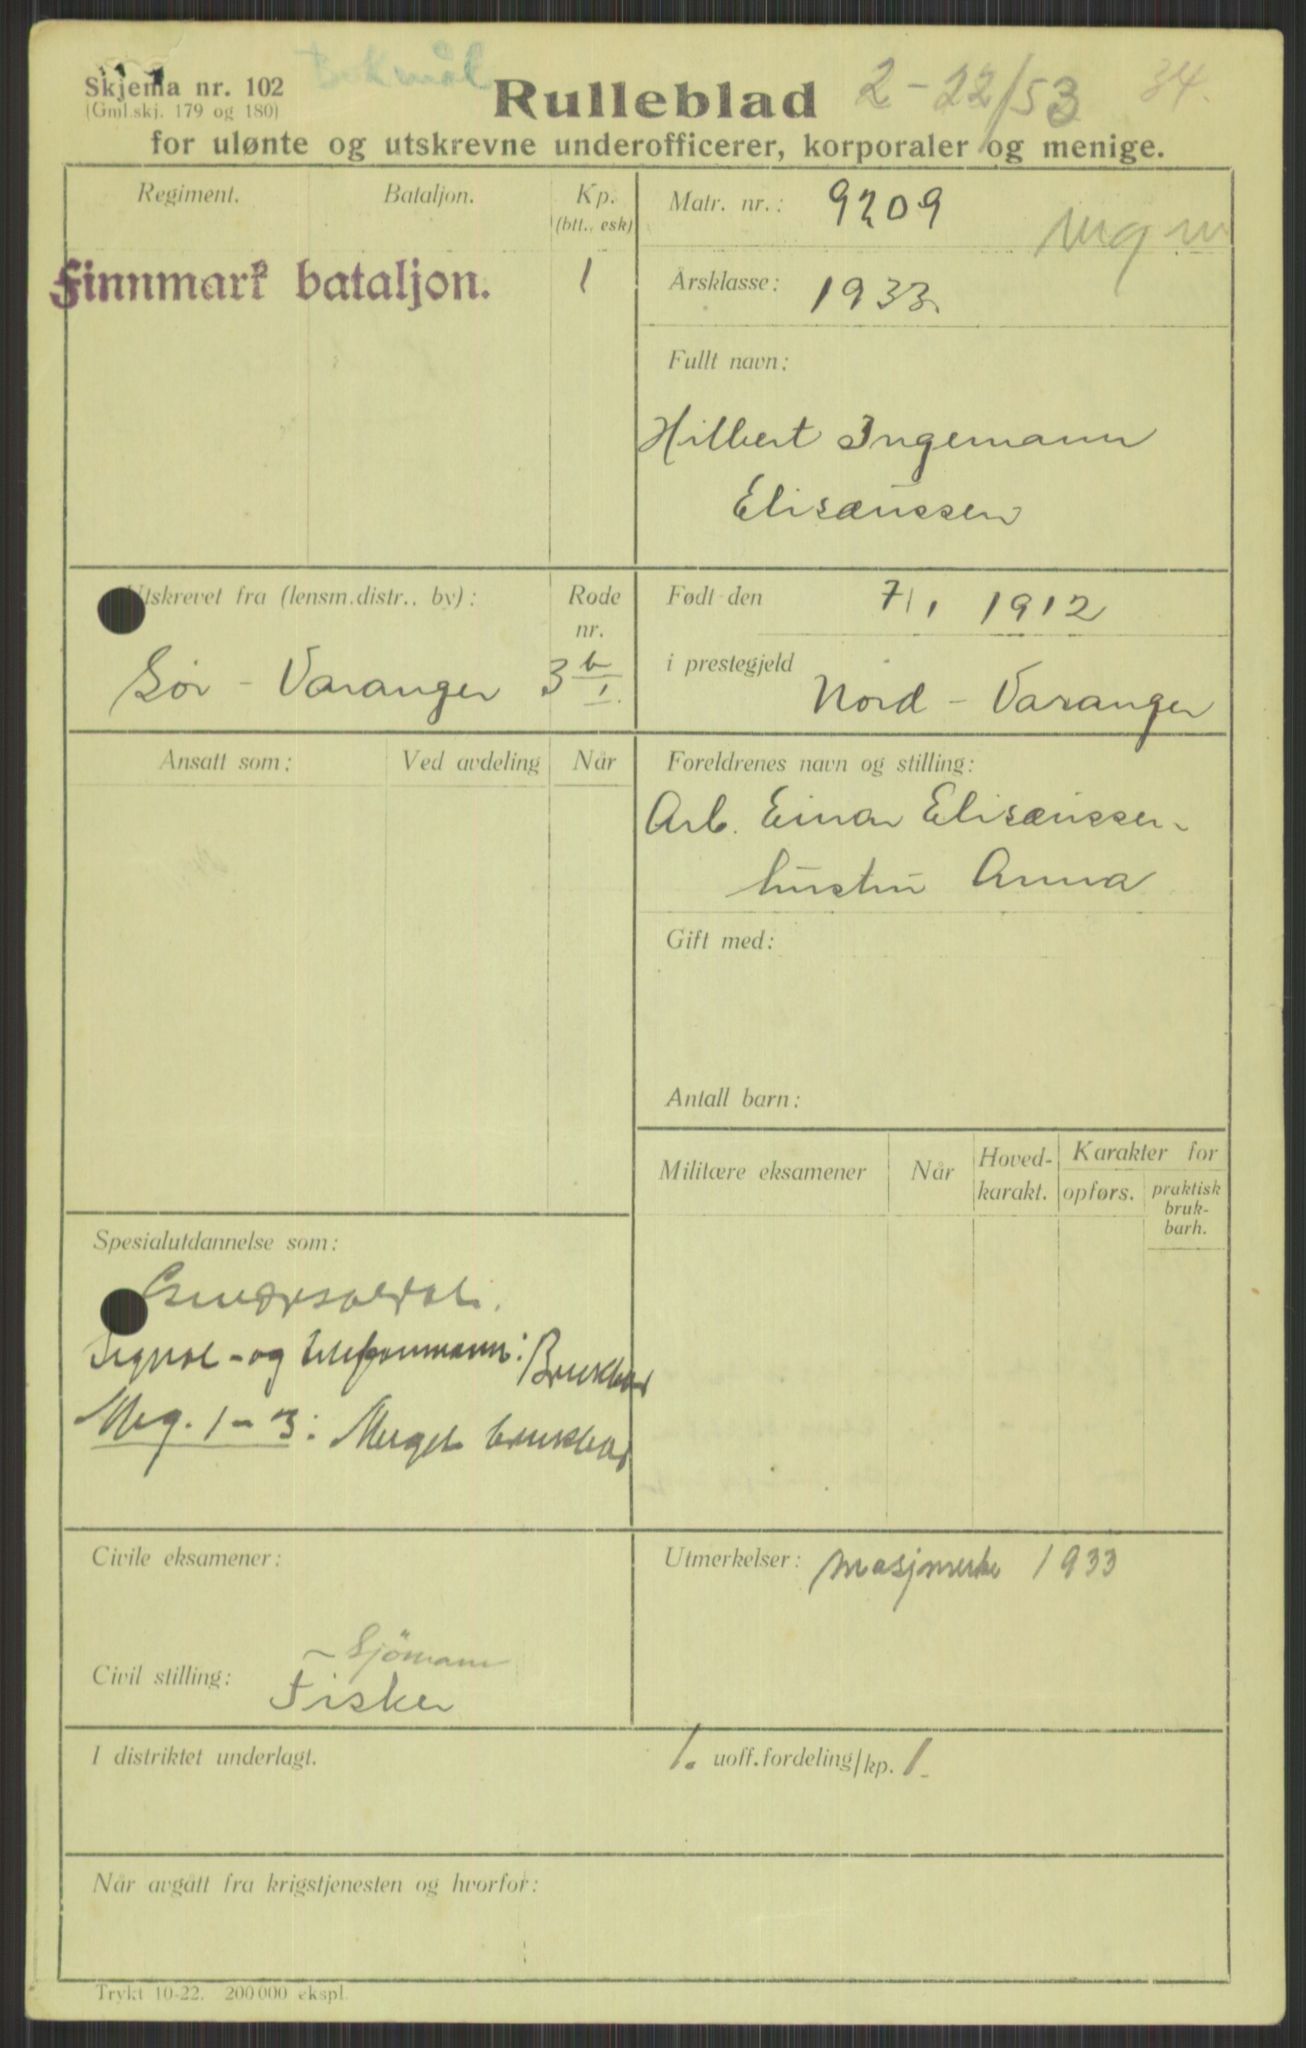 Skjema nr. 102
(Gml.skj. 179 og 180)
Bokmål
Rulleblad
2-22/53
34.
for ulønte og utskrevne underofficerer, korporaler og menige.
Regiment.
Bataljon.
Kp.
(btt., esk)
Finnmark bataljon.
1
Matr. nr.: 9209
Årsklasse: 1933.
Fullt navn:
Hilbert Ingemann
Elisæussen
Utskrevet fra (lensm.distr., by):
Rode
nr.
Sør - Varanger 3 b/1.
Født den 7/1 1912
i prestegjeld Nord - Varanger
Ansatt som:
Ved avdeling
Når
Foreldrenes navn og stilling:
Arb. Einar Elisæussen
hustru Anna
Gift med:
Antall barn:
Militære eksamener
Når
Hoved-
karakt.
Karakter for
opførs.
praktisk
bruk-
barh.
Spesialutdannelse som:
Signal- og telefonmann: Brukbar
Mg. 1-3: Meget brukbar
Civile eksamener:
Utmerkelser: Marsjmerke 1933
Sjömann
Civil stilling: Fisker
I distriktet underlagt.
1. uoff.fordeling/kp. 1.
Når avgått fra krigstjenesten og hvorfor:
Trykt 10-22. 200 000 ekspl.